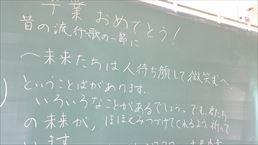 卒業おめでとう!
昔の流行歌の一節に
〜未来たちは人待ち顔して微笑む〜
ということばがあります。
いろいろなことがあるでしょう。でも、君たち
の未来が、ほほえみつづけてくれるよう、祈って
います。